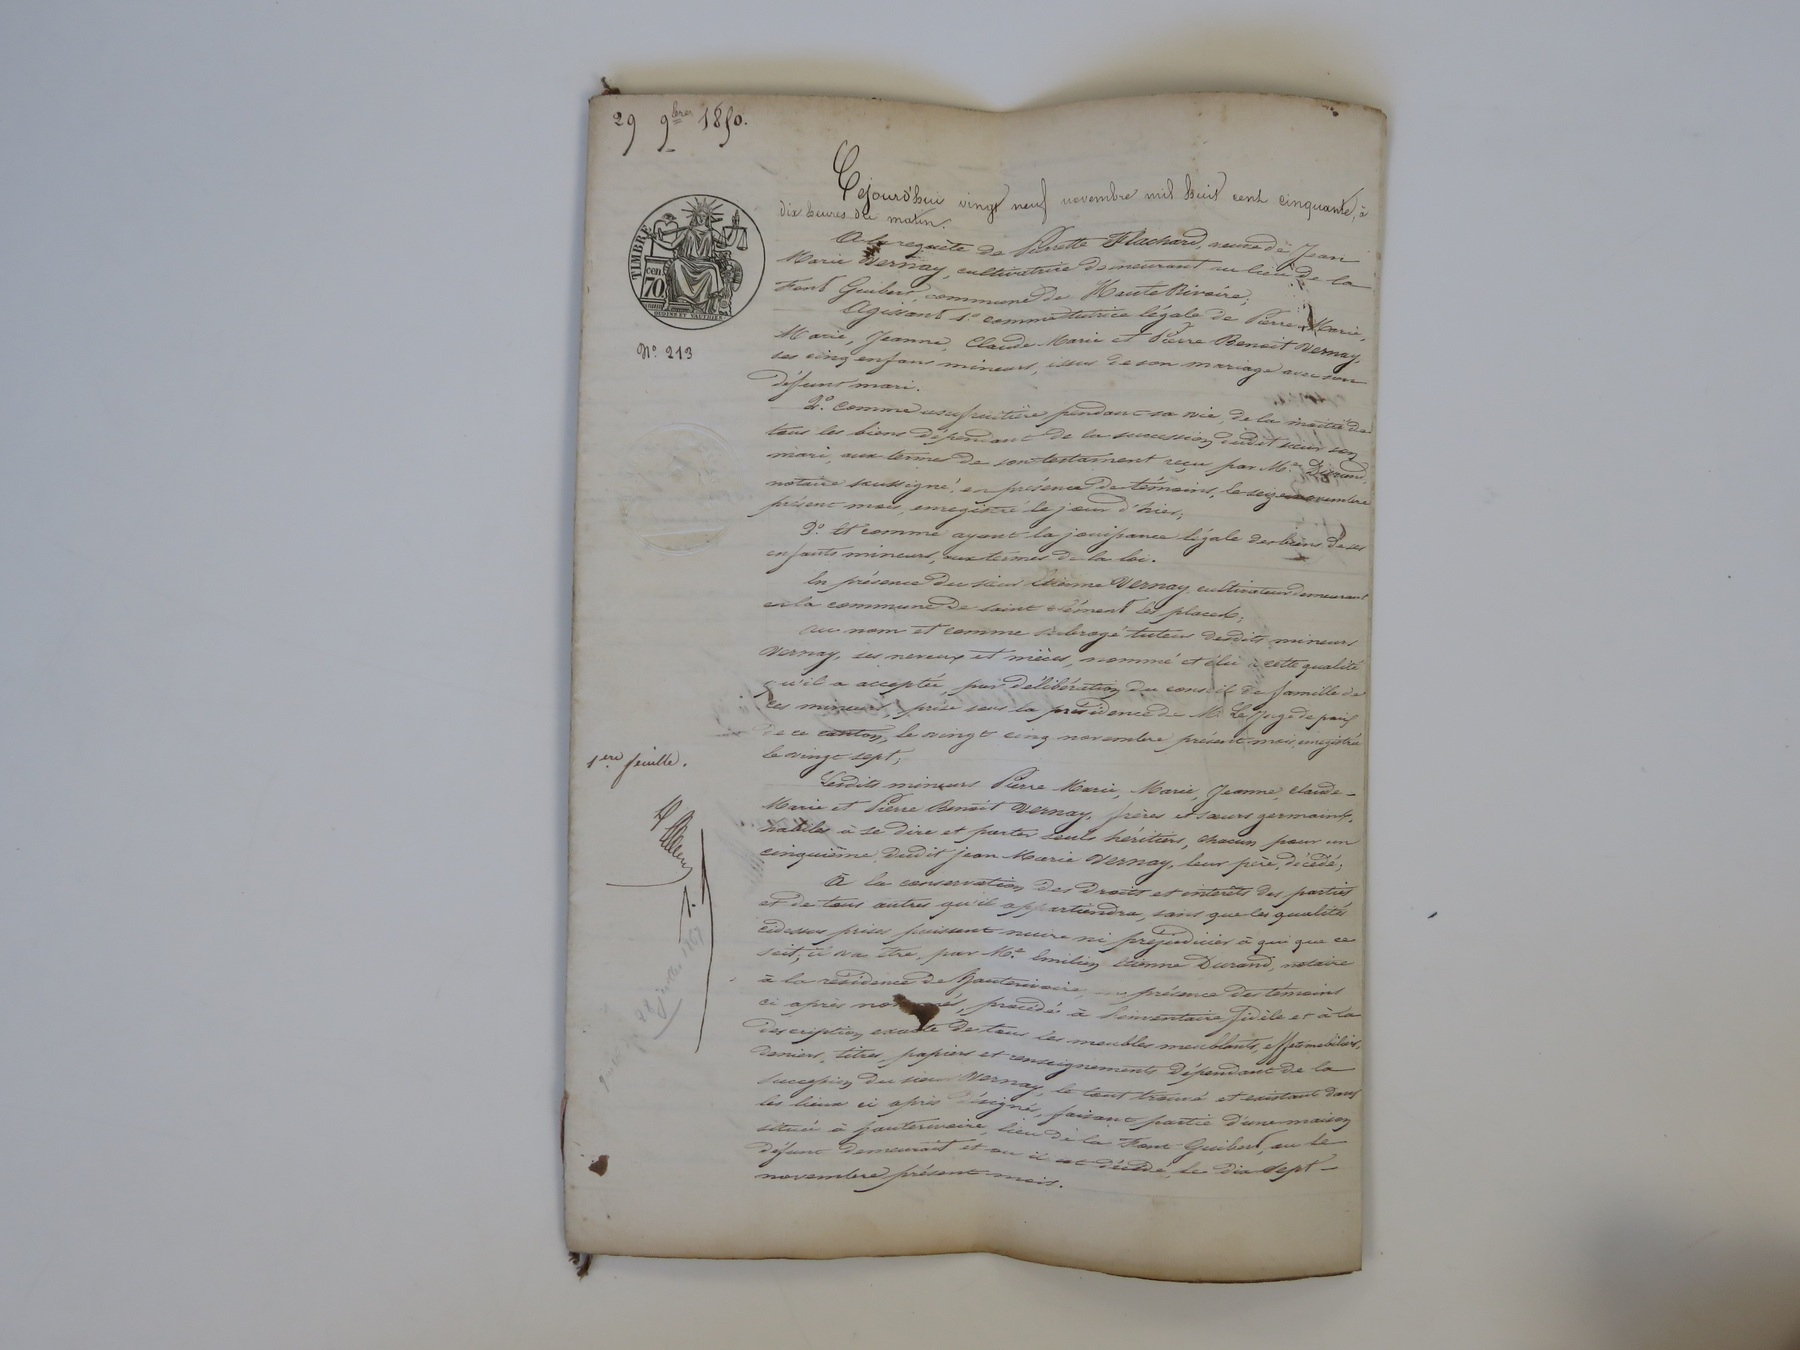 29 9bre 1850.
Cejourd'hui vingt neuf novembre mil huit cent cinquante, à
dix heures du matin.
A la requête de Pierrette Flachard, veuve de Jean
Marie Vernay, cultivatrice demeurant au lieu de la
Font Guibert, commune de Haute Rivoire;
Agissant 1º comme tutrice légale de Pierre Marie,
Marie, Jeanne, Claude-Marie et Pierre Benoit Vernay,
ses cinq enfans mineurs, issus de son mariage avec son
défunt mari.
2º. comme usufruitière pendant sa vie, de la moitié de
tous les biens dépendant de la succession dudit sieur son
mari, aux termes de son testament reçu par Me. Durand,
notaire soussigné, en présence de témoins, le seize novembre
présent mois, enregistré le jour d'hier;
3º. Et comme ayant la jouissance légale des biens de ses
enfants mineurs, aux termes de la loi.
En présence du sieur Etienne Vernay, cultivateur demeurant
en la commune de saint Clément les places;
au nom et comme subrogé tuteur desdits mineurs
Vernay, ses neveux et nièces, nommé et élu à cette qualité
qu'il a acceptée, par délibération du conseil de famille de
ces mineurs, prise sous la présidence de Mr. Le Juge de paix
de ce canton, le vingt cinq novembre présent mois, enregistré
le vingt sept;
Lesdits mineurs Pierre Marie, Marie, Jeanne, Claude-
Marie et Pierre Benoit Vernay, frères et sœurs germains,
habiles à se dire et porter seuls héritiers, chacun pour un
cinquième, dudit Jean Marie Vernay, leur père, décédé;
A la conservation des droits et intérêts des parties
et de tous autres qu'il appartiendra, sans que les qualités
cidessus prises puissent nuire ni préjudicier à qui que ce
soit, il va être, par Me. Emilien Etienne Durand, notaire
à la résidence de hauterivoire, en présence des témoins
ci après nommés, procédé à l'inventaire fidèle et à la
description exacte de tous les meubles meublants, effets mobiliers,
deniers, titres, papiers et renseignements dépendant de la
succession du sieur Vernay, le tout trouvé et existant dans
les lieux ci après désignés, faisant partie d'une maison
située à hauterivoire, lieu de la Font Guibert, où le
défunt demeurait et où il est décédé, le dix sept
novembre présent mois.
TIMBRE
70
cen
Nº. 213
1ère feuille.